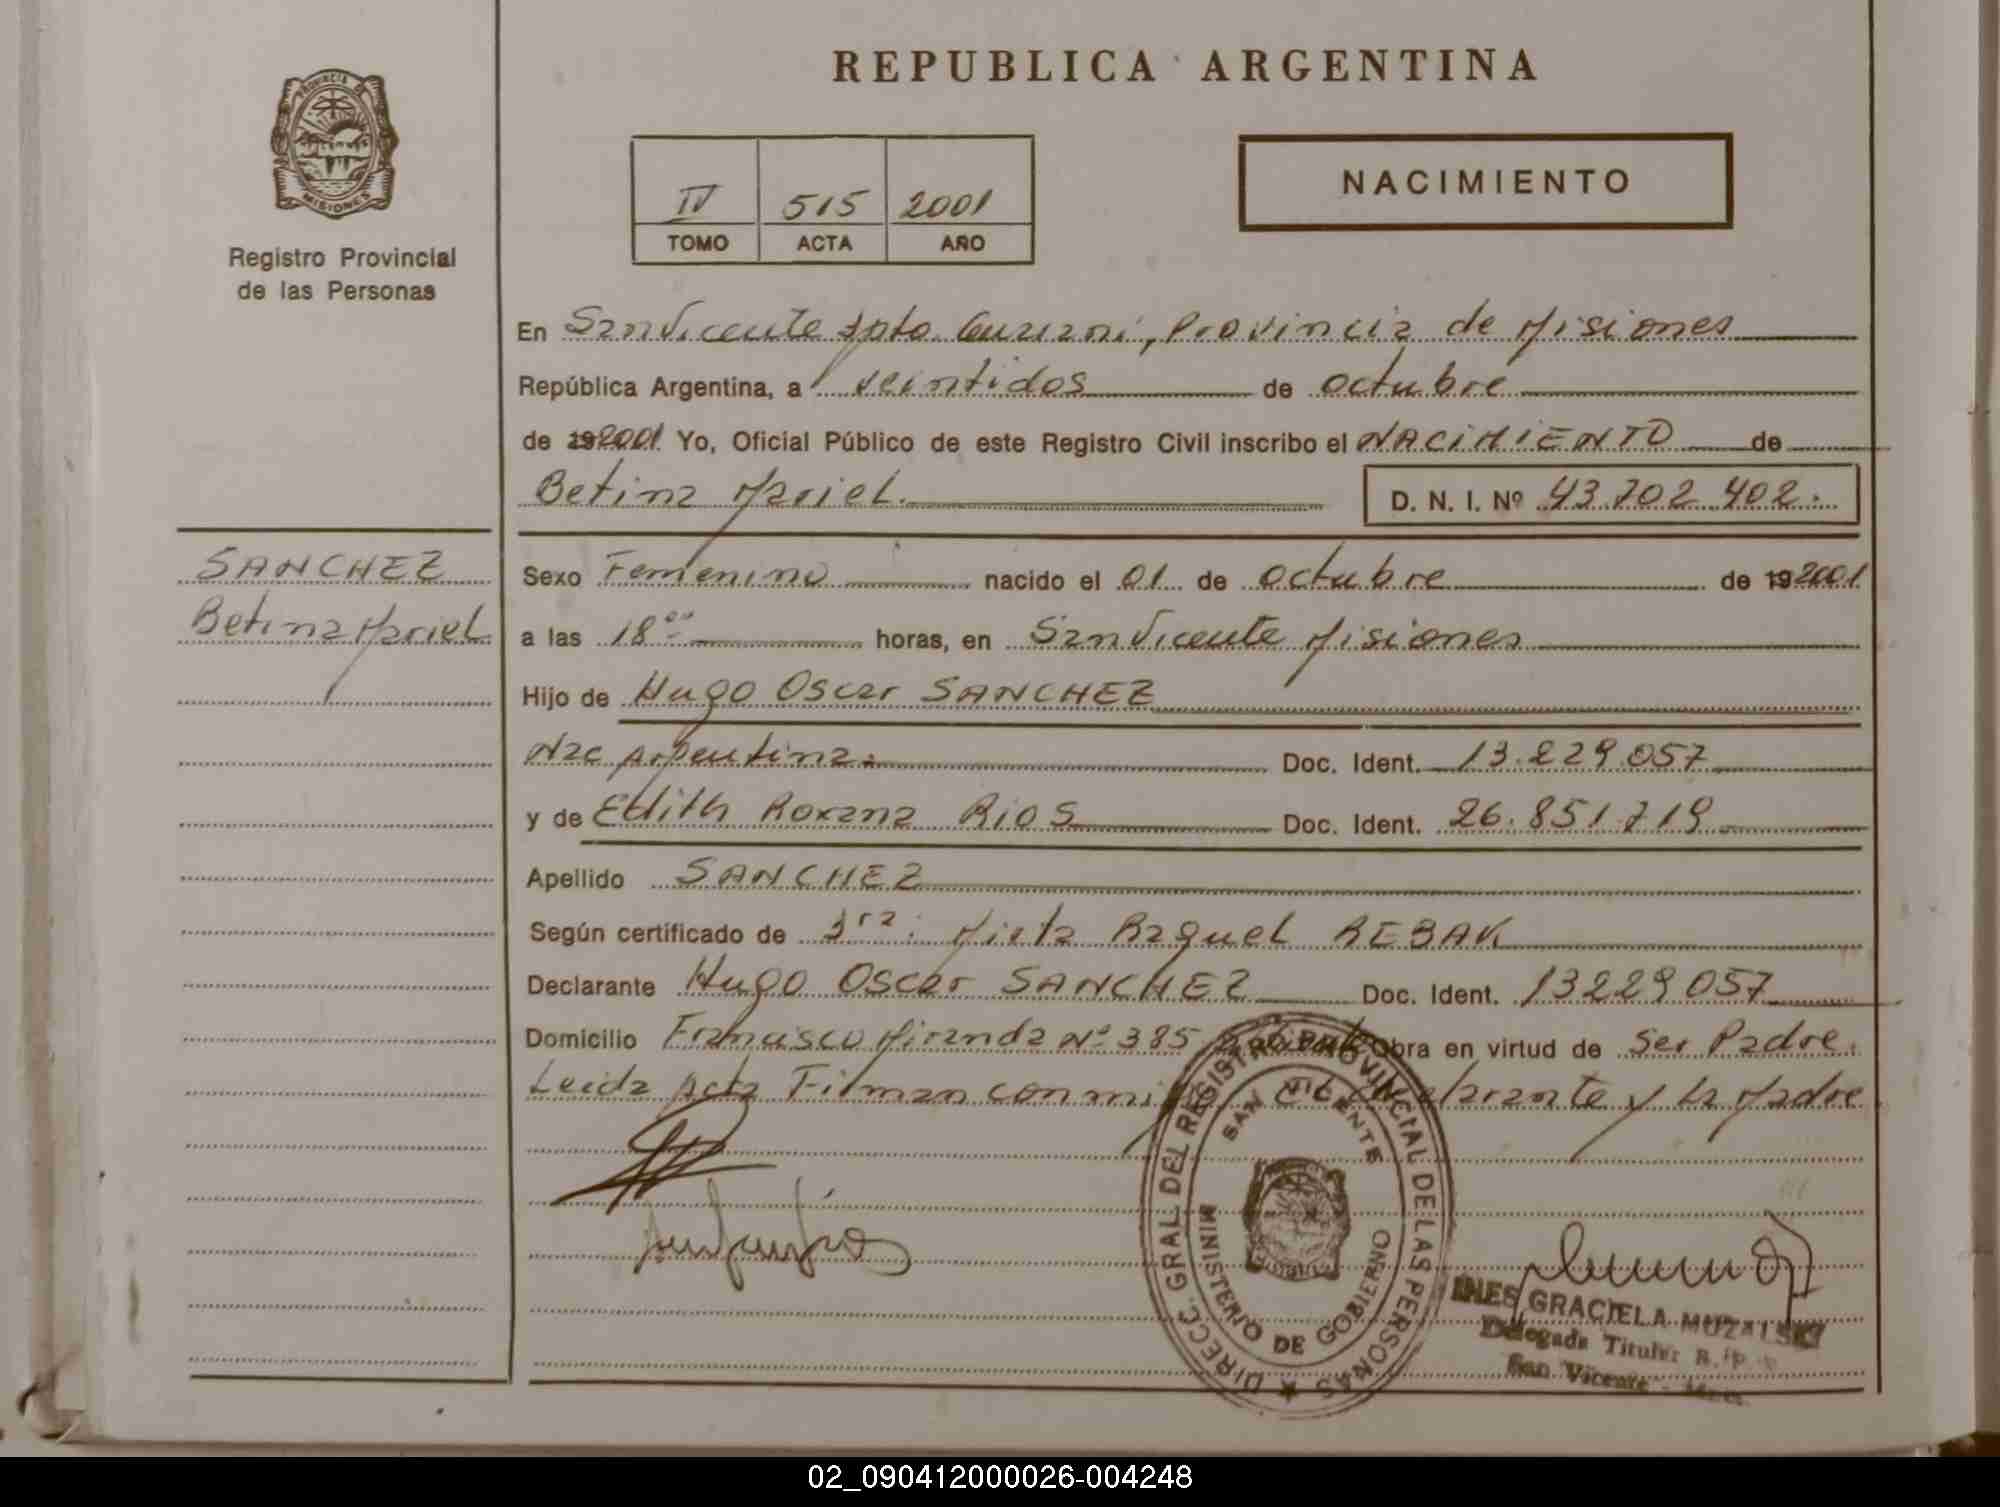 REPUBLICA ARGENTINA
PROVINCIA DE
MISIONES
Registro Provincial
de las Personas
IV 515 2001
TOMO ACTA AÑO
NACIMIENTO
En San Vicente Dpto. Guaraní, Provincia de Misiones
República Argentina, a veintidos de octubre
de 192001 Yo, Oficial Público de este Registro Civil inscribo el NACIMIENTO de
Betina Mariel. D. N. I. Nº 43.702.402.
SANCHEZ
Betina Mariel
Sexo Femenino nacido el 01 de octubre de 192001
a las 18⁰⁰ horas, en San Vicente Misiones
Hijo de Hugo Oscar SANCHEZ
Nac Argentina. Doc. Ident. 13.229.057
y de Edith Roxana RIOS Doc. Ident. 26.851.719
Apellido SANCHEZ
Según certificado de Dra. Mirta Raquel REBAK
Declarante Hugo Oscar SANCHEZ Doc. Ident. 13229057
Domicilio Francisco Miranda Nº 385 Obra en virtud de Ser Padre.
Leida Acta Firman conmigo el declarante y la Madre
DIRECC. GRAL. DEL REGISTRO PROVINCIAL DE LAS PERSONAS
SAN VICENTE
MINISTERIO DE GOBIERNO
INES GRACIELA MUZALSKI
Delegada Titular R.P.
San Vicente - Mnes.
02_090412000026-004248